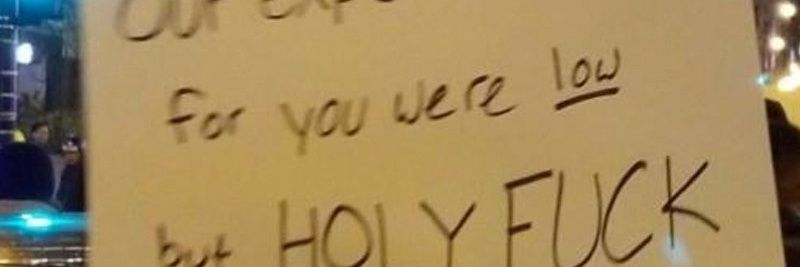 Our
for you were low
but HOLY FUCK